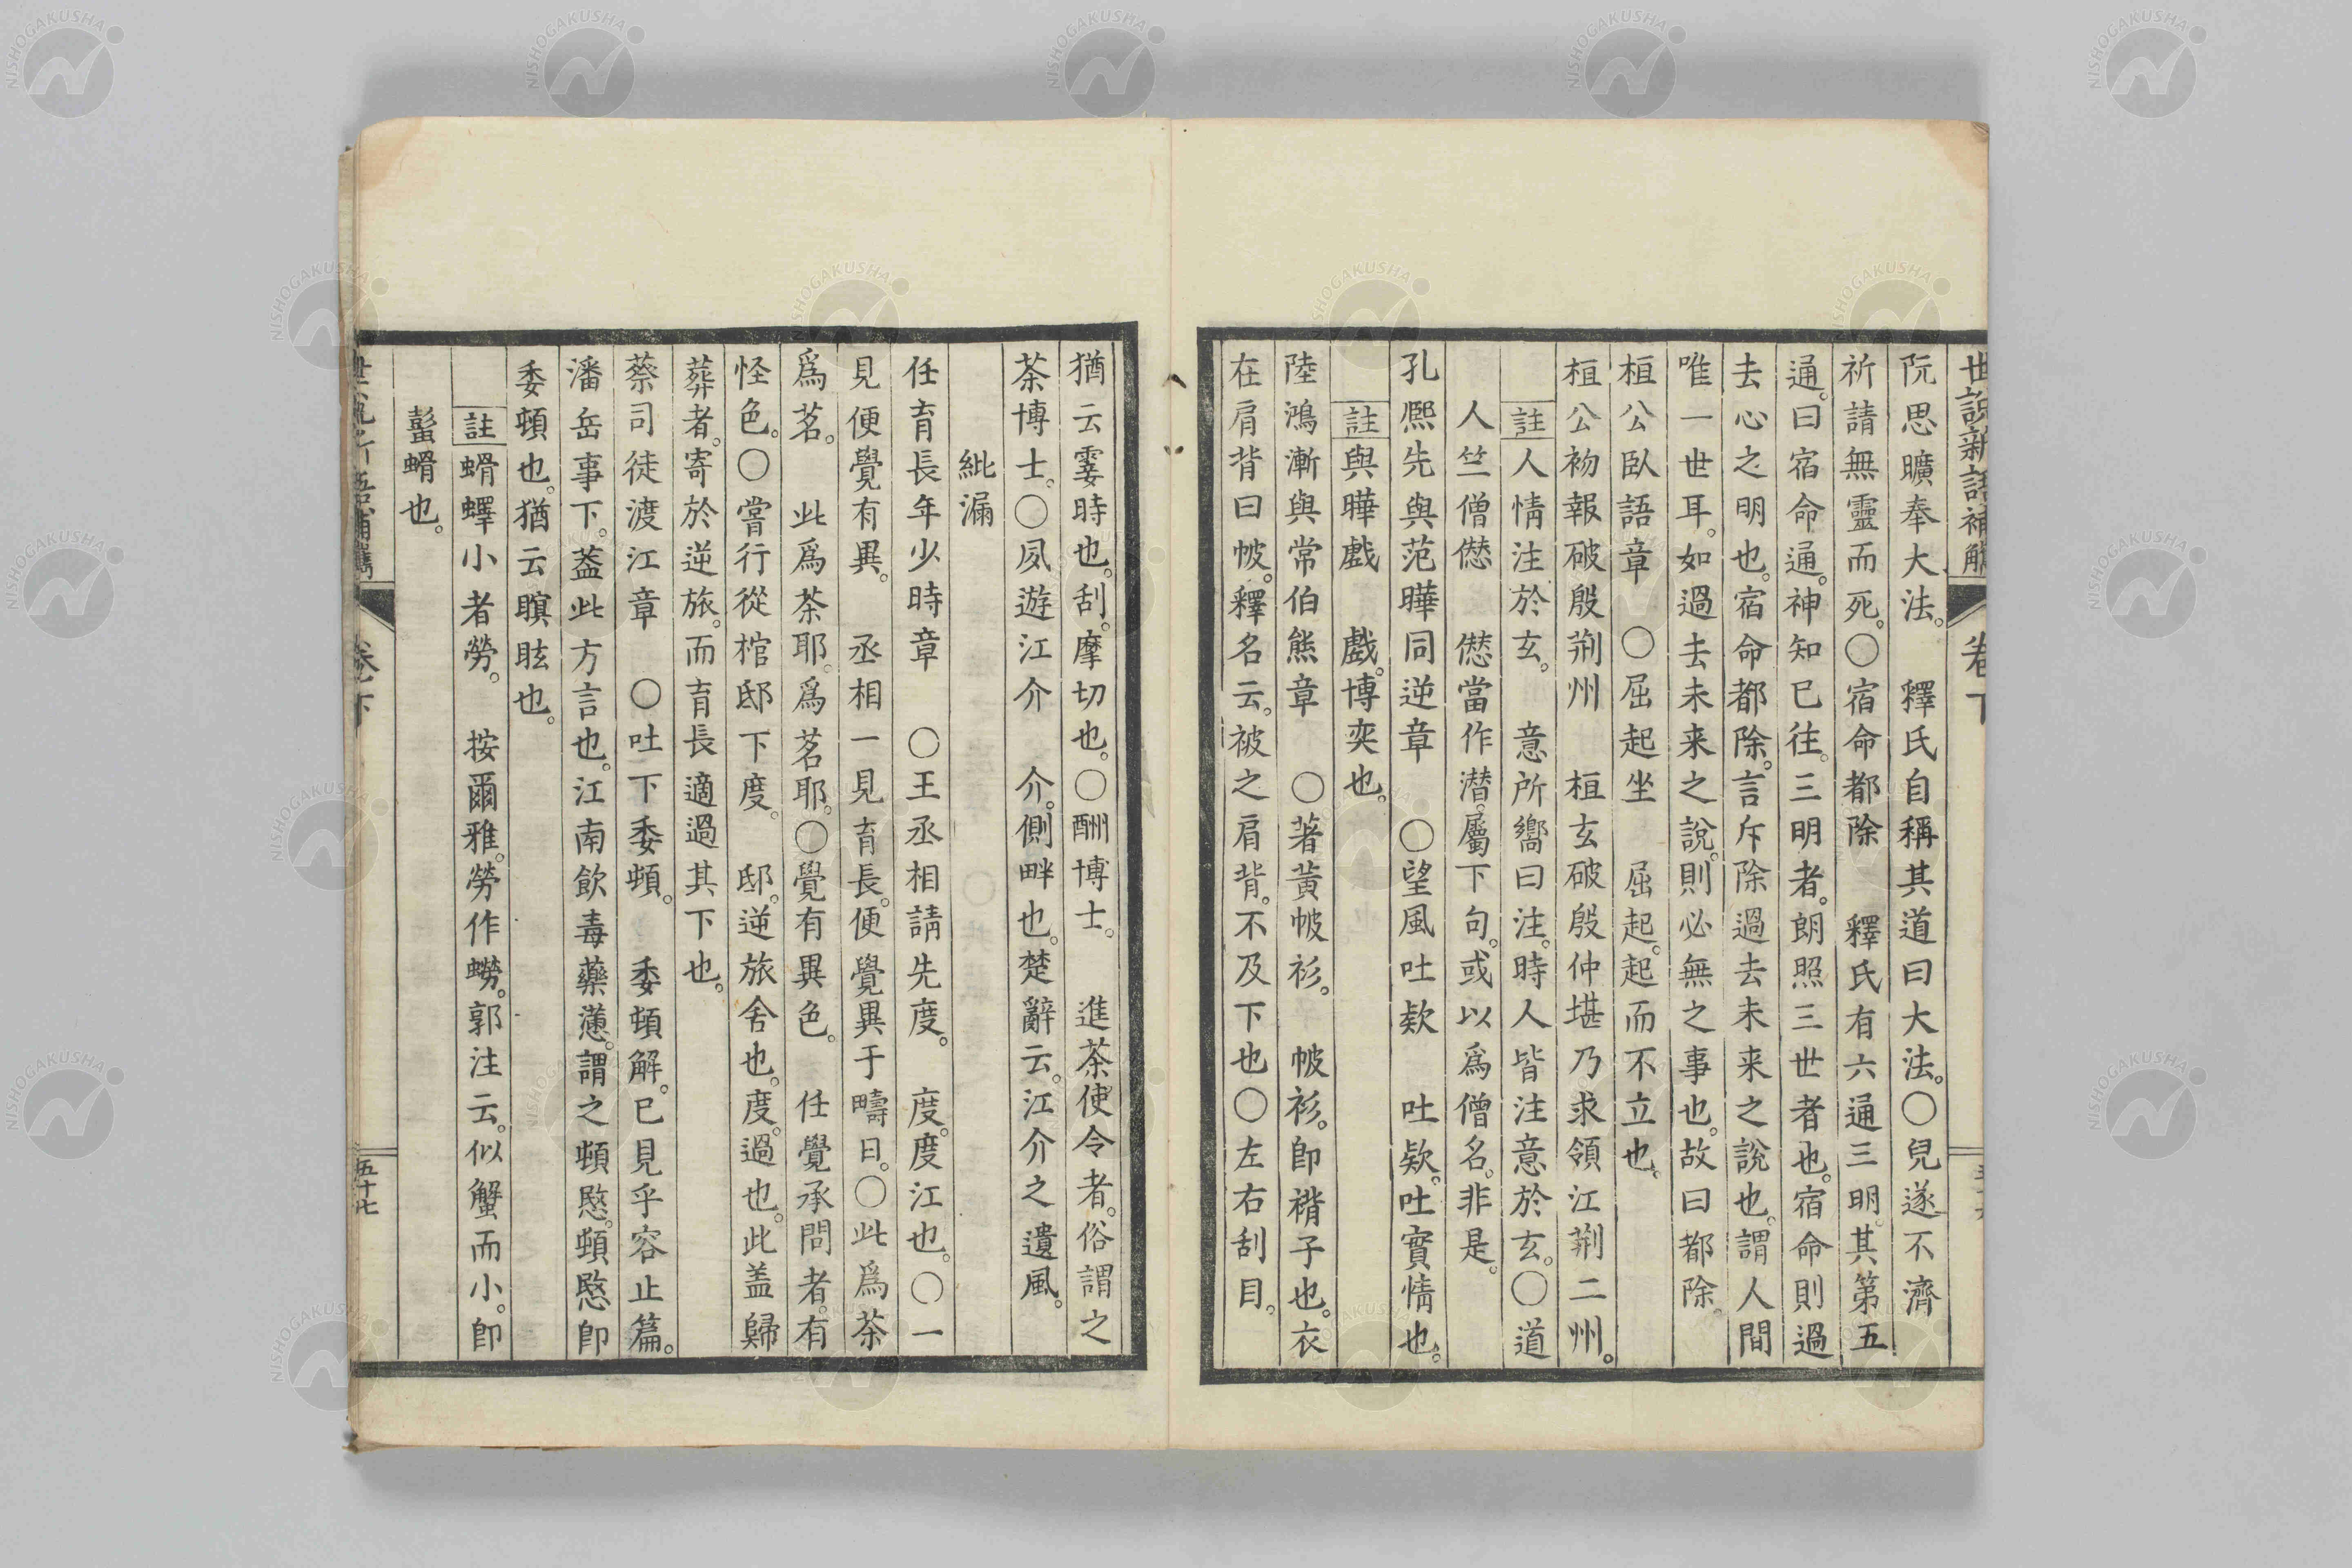 世說新語補觿　卷下
阮思曠奉大法。　釋氏自稱其道曰大法。〇兒遂不濟
祈請無靈而死。〇宿命都除　釋氏有六通三明。其第五
通。曰宿命通。神知已往。三明者。朗照三世者也。宿命則過
去心之明也。宿命都除。言斥除過去未来之說也。謂人間
唯一世耳。如過去未来之說。則必無之事也。故曰都除。
桓公臥語章　〇屈起坐　屈起。起而不立也。
桓公初報破殷荊州　桓玄破殷仲堪乃求領江荊二州。
註人情注於玄。　意所嚮曰注。時人皆注意於玄。〇道
人竺僧㒈　㒈當作潜。屬下句。或以爲僧名。非是。
孔熙先與范曄同逆章　〇望風吐欵　吐欵。吐實情也。
註與曄戲　戲。博奕也。
陸鴻漸與常伯熊章　〇著黃帔衫。　帔衫。卽褙子也。衣
在肩背曰帔。釋名云。被之肩背。不及下也〇左右刮目。
猶云霎時也。刮。摩切也。〇酬博士。　進茶使令者。俗謂之
茶博士。〇夙遊江介　介。側畔也。楚辭云。江介之遺風。
紕漏
任育長年少時章　〇王丞相請先度。　度。度江也。〇一
見便覺有異。　丞相一見育長。便覺異于疇日。〇此爲茶
爲茗。　此爲茶耶。爲茗耶。〇覺有異色。　任覺承問者。有
怪色。〇嘗行從棺邸下度。　邸。逆旅舍也。度。過也。此盖歸
葬者。寄於逆旅。而育長適過其下也。
蔡司徒渡江章　〇吐下委頓。　委頓解。已見乎容止篇。
潘岳事下。蓋此方言也。江南飲毒藥懣。謂之頓愍。頓愍卽
委頓也。猶云瞑眩也。
註蝟蠌小者勞。　按爾雅。勞作蟧。郭注云。似蟹而小。卽
螿蝟也。
卷下　五十七